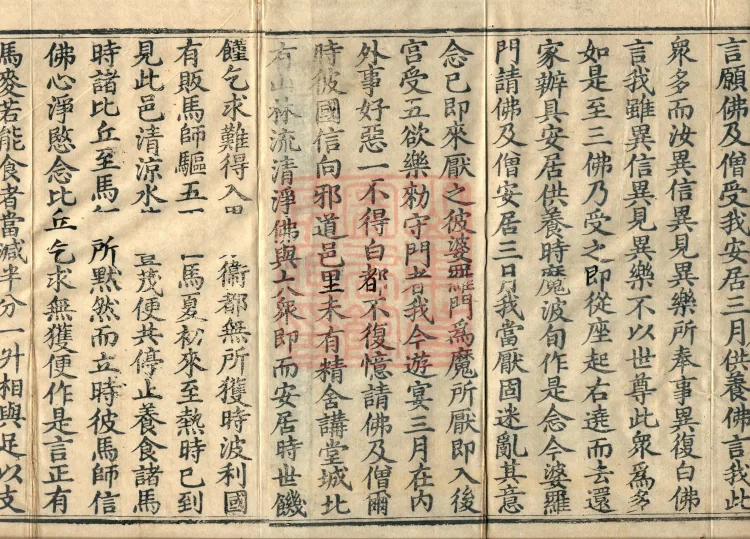 言願佛及僧受我安居三月供養佛言我此
衆多而汝異信異見異樂所奉事異復白佛
言我雖異信異見異樂不以世尊此衆爲多
如是至三佛乃受之即從座起右遶而去還
家辦具安居供養時魔波旬作是念今婆羅
門請佛及僧安居三月我當厭固迷亂其意
念已即來厭之彼婆羅門爲魔所厭即入後
宮受五欲樂勑守門者我今遊宴三月在内
外事好惡一不得白都不復憶請佛及僧爾
時彼國信向邪道邑里未有精舍講堂城北
有山林流清淨佛與大衆即而安居時世饑
饉乞求難得入 衞都無所獲時波利國
有販馬師驅五 馬夏初來至熱時已到
見此邑清涼水 茂便共停止養食諸馬
時諸比丘至馬 所默然而立時彼馬師信
佛心淨愍念比丘乞求無獲便作是言正有
馬麥若能食者當減半分一升相與足以支